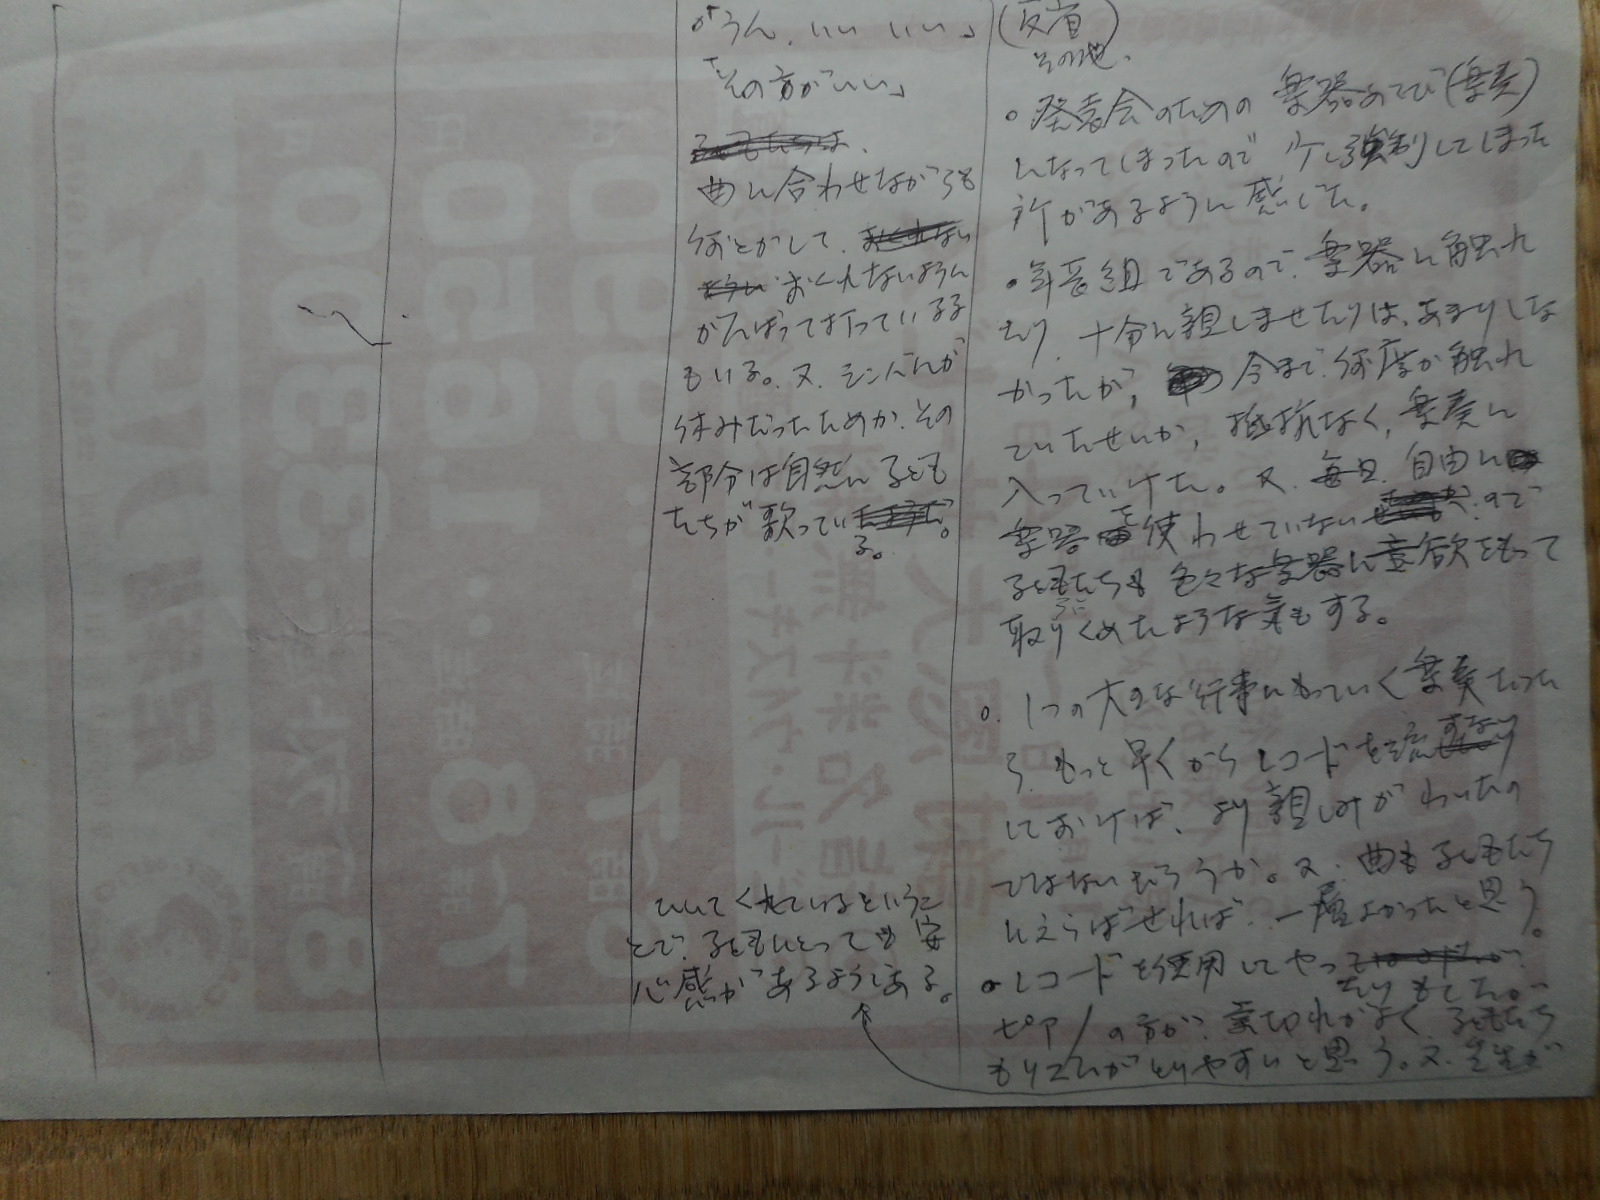 「うん、いい いい」
「その方がいい」
曲に合わせながらも
何とかして、
おくれないように
がんばって打っている子
もいる。又、シンバルが
休みだったためか、その
部分は自然に子ども
たちが歌ってい
る。
(反省)
その他、
○発表会のための楽器あそび(楽奏)
になってしまったので 少し強制してしまった
所があるように感じた。
○年長組であるので、楽器に触れ
たり、十分に親しませたりは、あまりしな
かったが、今まで、何度か触れ
ていたせいか、抵抗なく、楽奏に
入っていけた。又、毎日、自由に
楽器を使わせていない ので
子どもたちも 色々な楽器に意欲をもって
取りくめたような気もする。
○1つの大きな行事にもっていく楽奏だった
ら、もっと早くからレコードを流すなり
しておけば、より親しみがわいたの
ではないだろうか。又、曲も子どもたち
にえらばせれば、一層よかったと思う。
○レコードを使用してやっ
たりもした。
ピアノの方が、歯切れがよく、子どもたち
もリズムがとりやすいと思う。又、先生が
ひいてくれているというこ
とで、子どもにとっても安
心感があるようである。